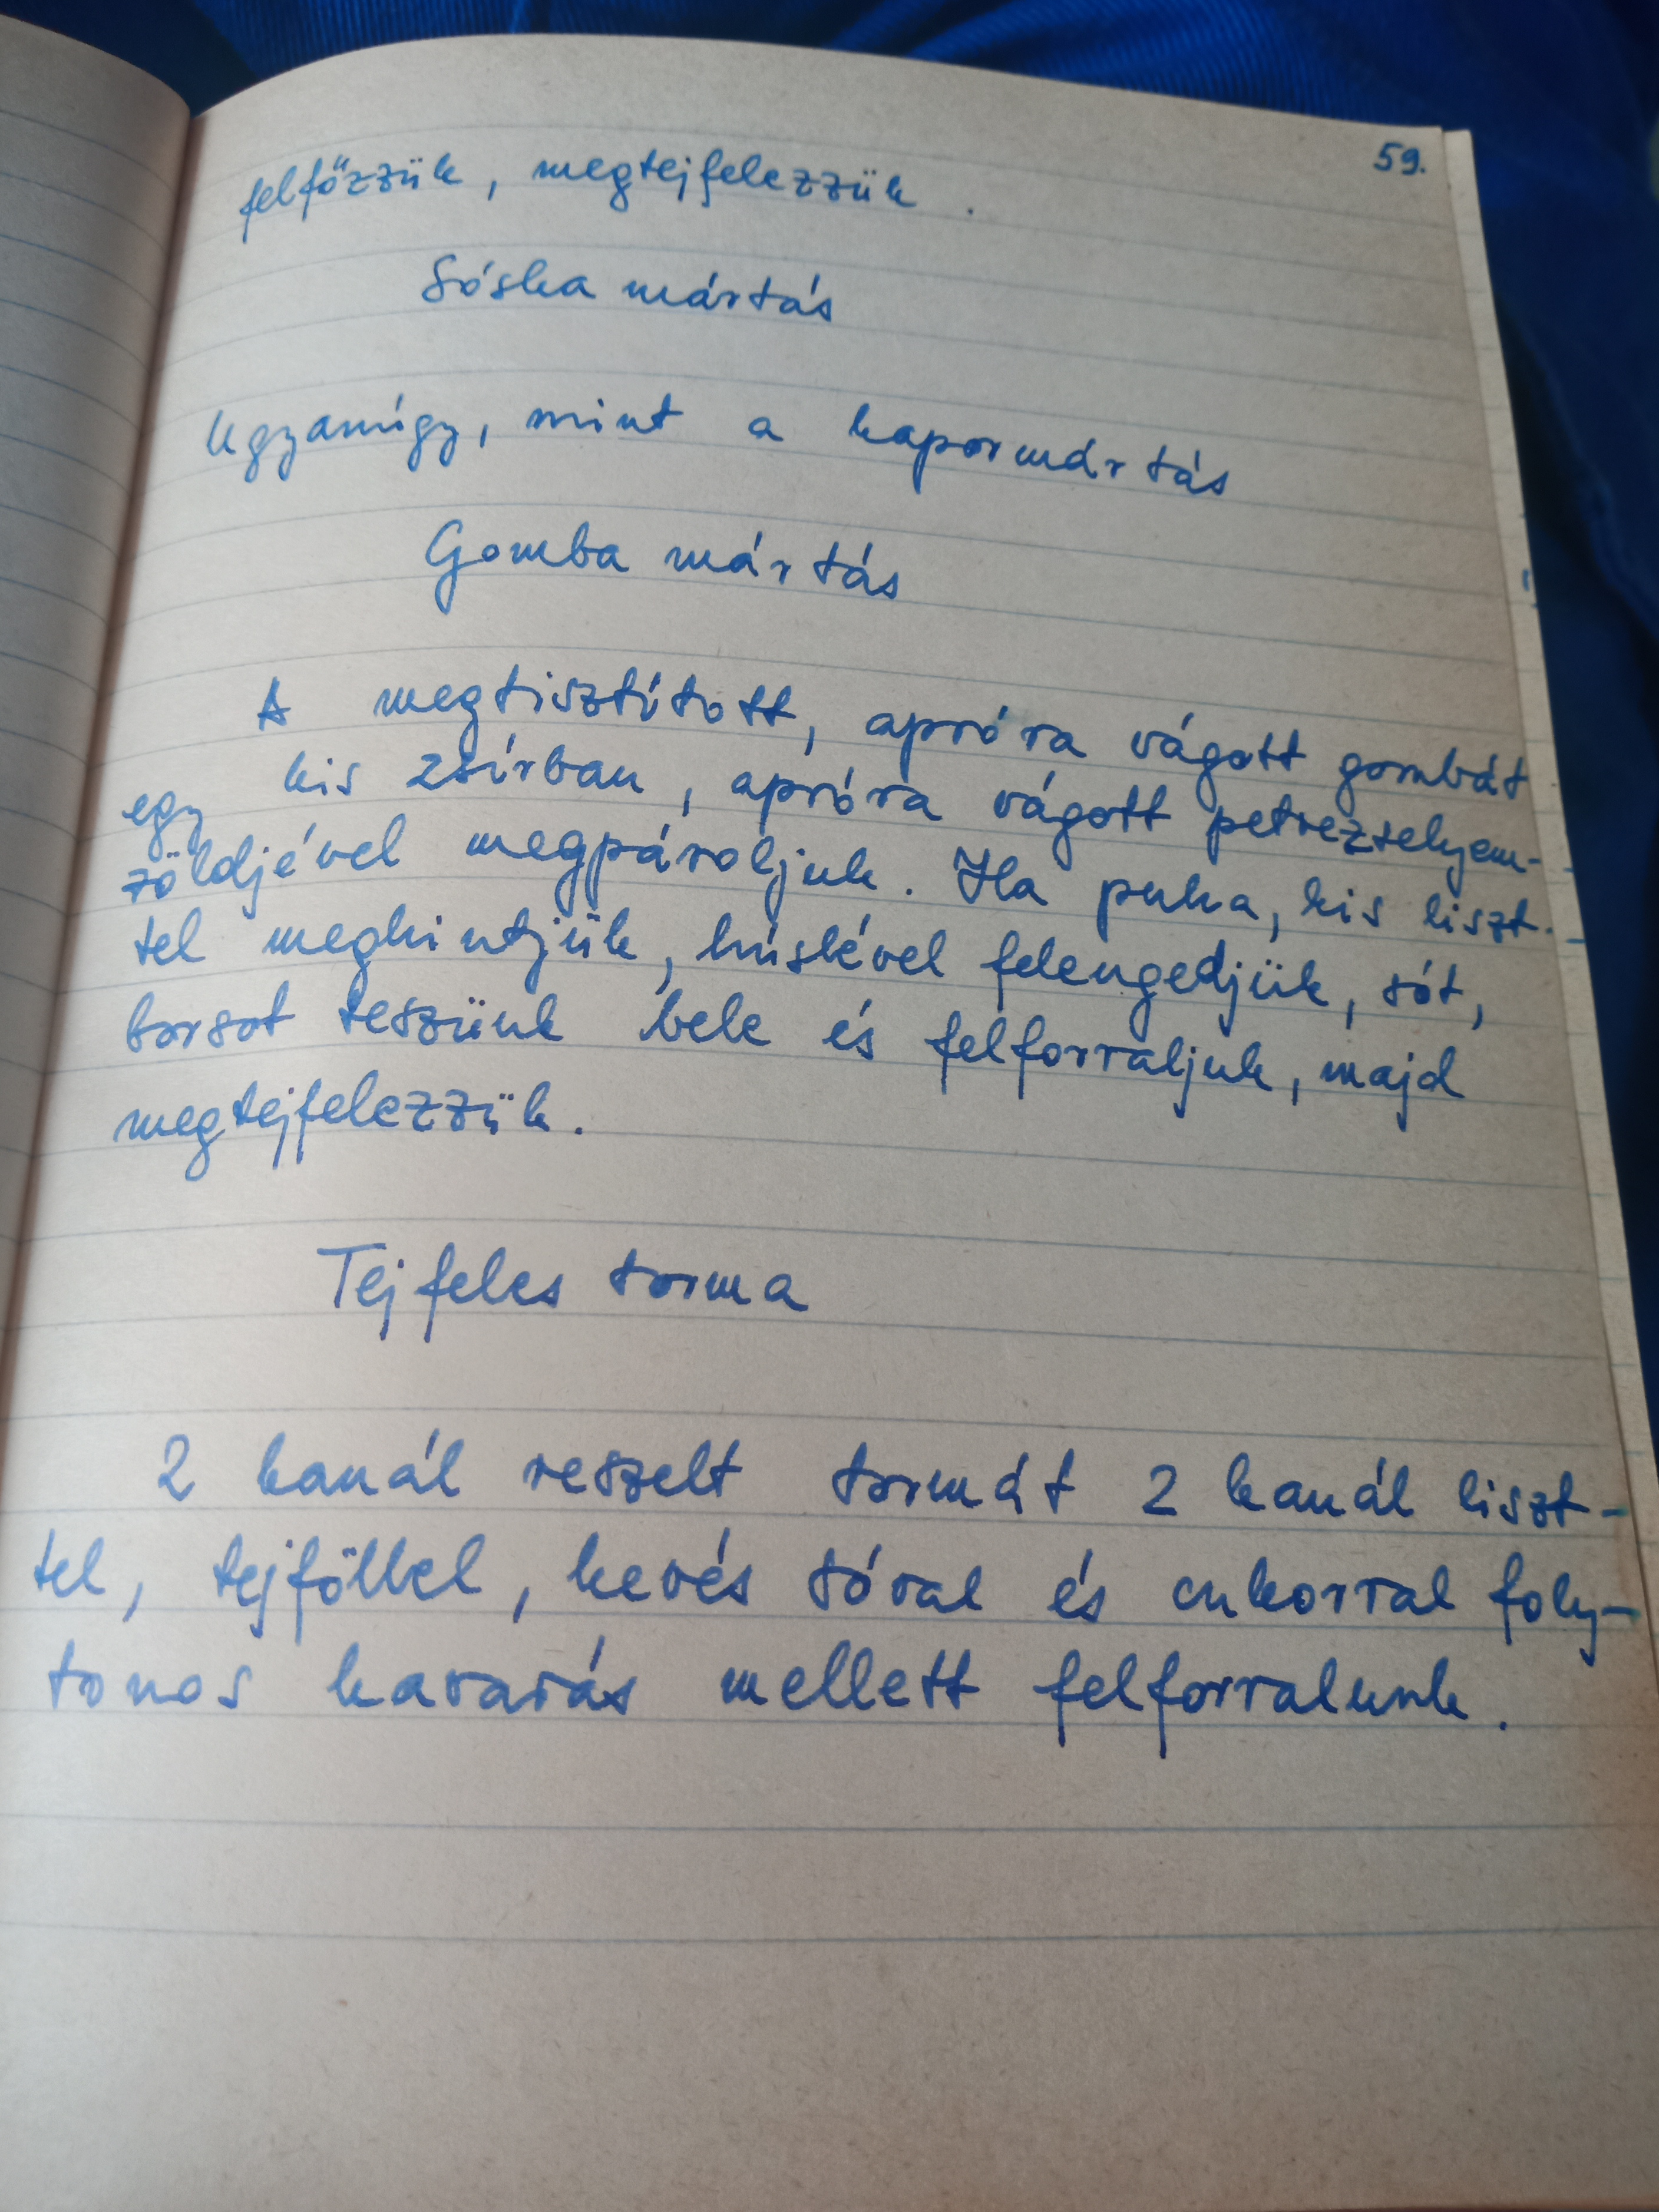 59.
felfőzzük, megtejfelezzük.
Sóska mártás
Ugyanúgy, mint a kapormártás
Gomba mártás
A megtisztított, apróra vágott gombát
egy kis zsírban, apróra vágott petrezselyem-
zöldjével megpároljuk. Ha puha, kis liszt-
tel meghintjük, húslével felengedjük, sót,
borsot teszünk bele és felforraljuk, majd
megtejfelezzük.
Tejfeles torma
2 kanál reszelt tormát 2 kanál liszt-
tel, tejföllel, kevés sóval és cukorral foly-
tonos kavarás mellett felforralunk.